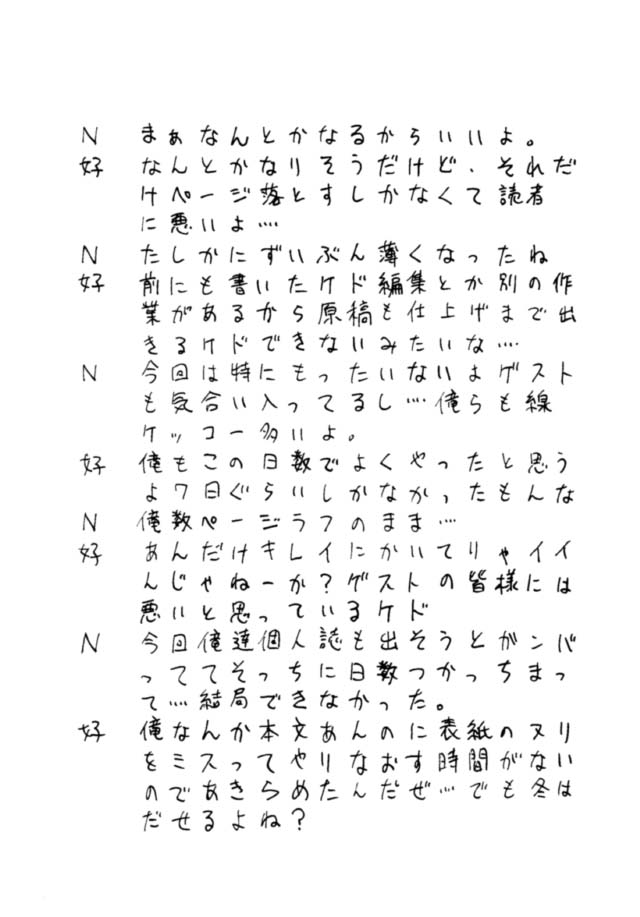 N　まぁなんとかなるからいいよ。
好　なんとかなりそうだけど、それだ
けページ落とすしかなくて読者
に悪いよ…
N　たしかにずいぶん薄くなったね
好　前にも書いたケド編集とか別の作
業があるから原稿も仕上げまで出
きるケドできないみたいな…
N　今回は特にもったいないよゲスト
も気合い入ってるし…俺らも線
ケッコー多いよ。
好　俺もこの日数でよくやったと思う
よ7日ぐらいしかなかったもんな
N　俺数ページラフのまま…
好　あんだけキレイにかいてりゃイイ
んじゃねーか？ゲストの皆様には
悪いと思っているケド
N　今回俺達個人誌も出そうとガンバ
っててそっちに日数つかっちまっ
て…結局できなかった。
好　俺なんか本文あんのに表紙のヌリ
をミスってやりなおす時間がない
のであきらめたんだぜ…でも冬は
だせるよね？